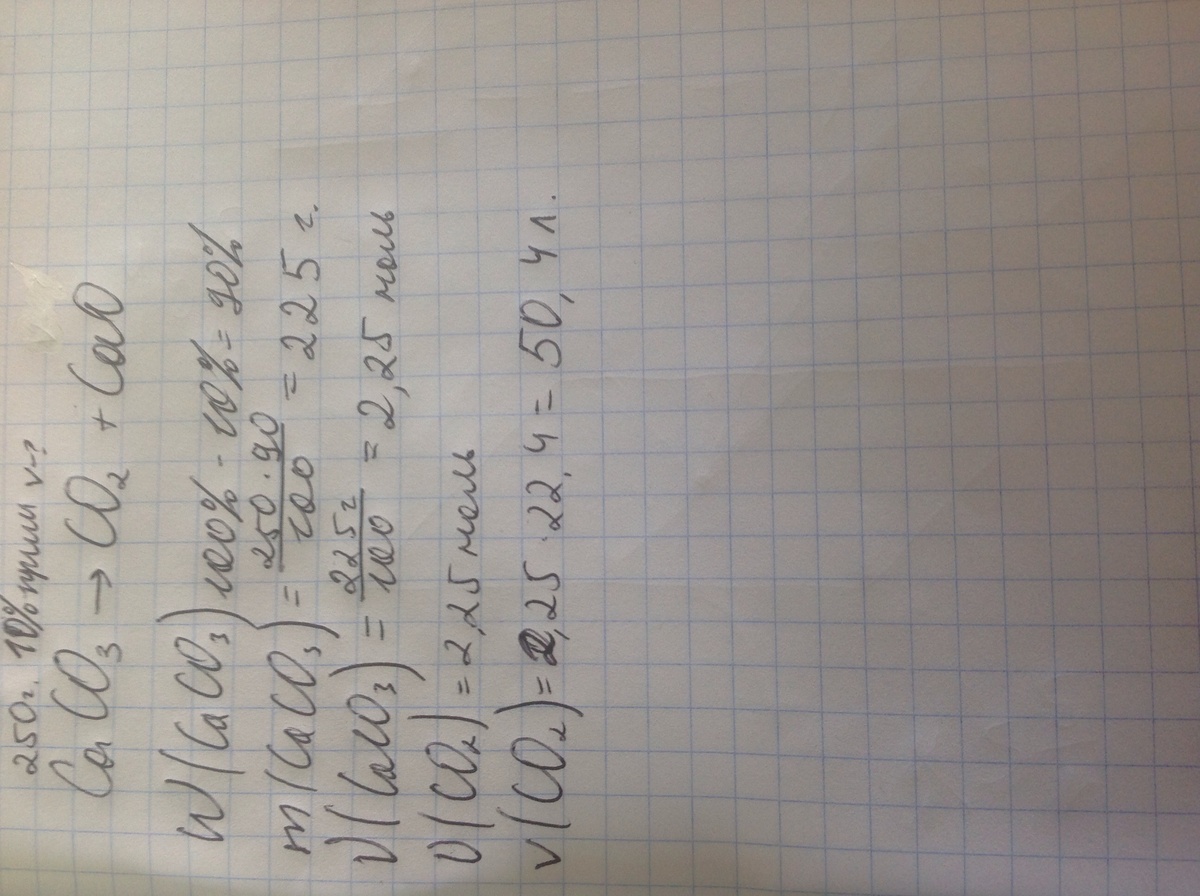 250г. 10% прим v-?
CaCO3 → CO2 + CaO
W(CaCO3) 100% - 10% = 90%
m(CaCO3) = 250 · 90 / 100 = 225 г.
ν(CaCO3) = 225г / 100 = 2,25 моль
ν(CO2) = 2,25 моль
v(CO2) = 2,25 · 22,4 = 50,4 л.